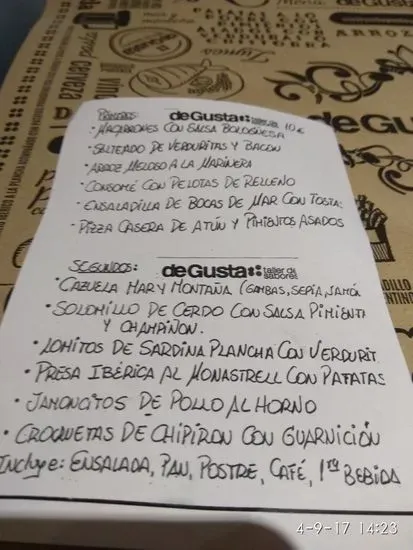 Menú
vino
cerveza
ARROZ
PRIMEROS: deGusta taller de sabores 10 €
• MACARRONES CON SALSA BOLOGNESA
• SALTEADO DE VERDURITAS Y BACON
• ARROZ MELOSO A LA MARINERA
• CONSOMÉ CON PELOTAS DE RELLENO
• ENSALADILLA DE BOCAS DE MAR CON TOSTA
• PIZZA CASERA DE ATÚN Y PIMIENTOS ASADOS
SEGUNDOS: deGusta taller de sabores
• CAZUELA MAR Y MONTAÑA (GAMBAS, SEPIA, JAMÓN
• SOLOMILLO DE CERDO CON SALSA PIMIENTA
Y CHAMPIÑON.
• LOMITOS DE SARDINA PLANCHA CON VERDURIT
• PRESA IBÉRICA AL MONASTRELL CON PATATAS
• JAMONCITOS DE POLLO AL HORNO
• CROQUETAS DE CHIPIRON CON GUARNICIÓN
Incluye: ENSALADA, PAN, POSTRE, CAFÉ, 1ra BEBIDA
4-9-17 14:23